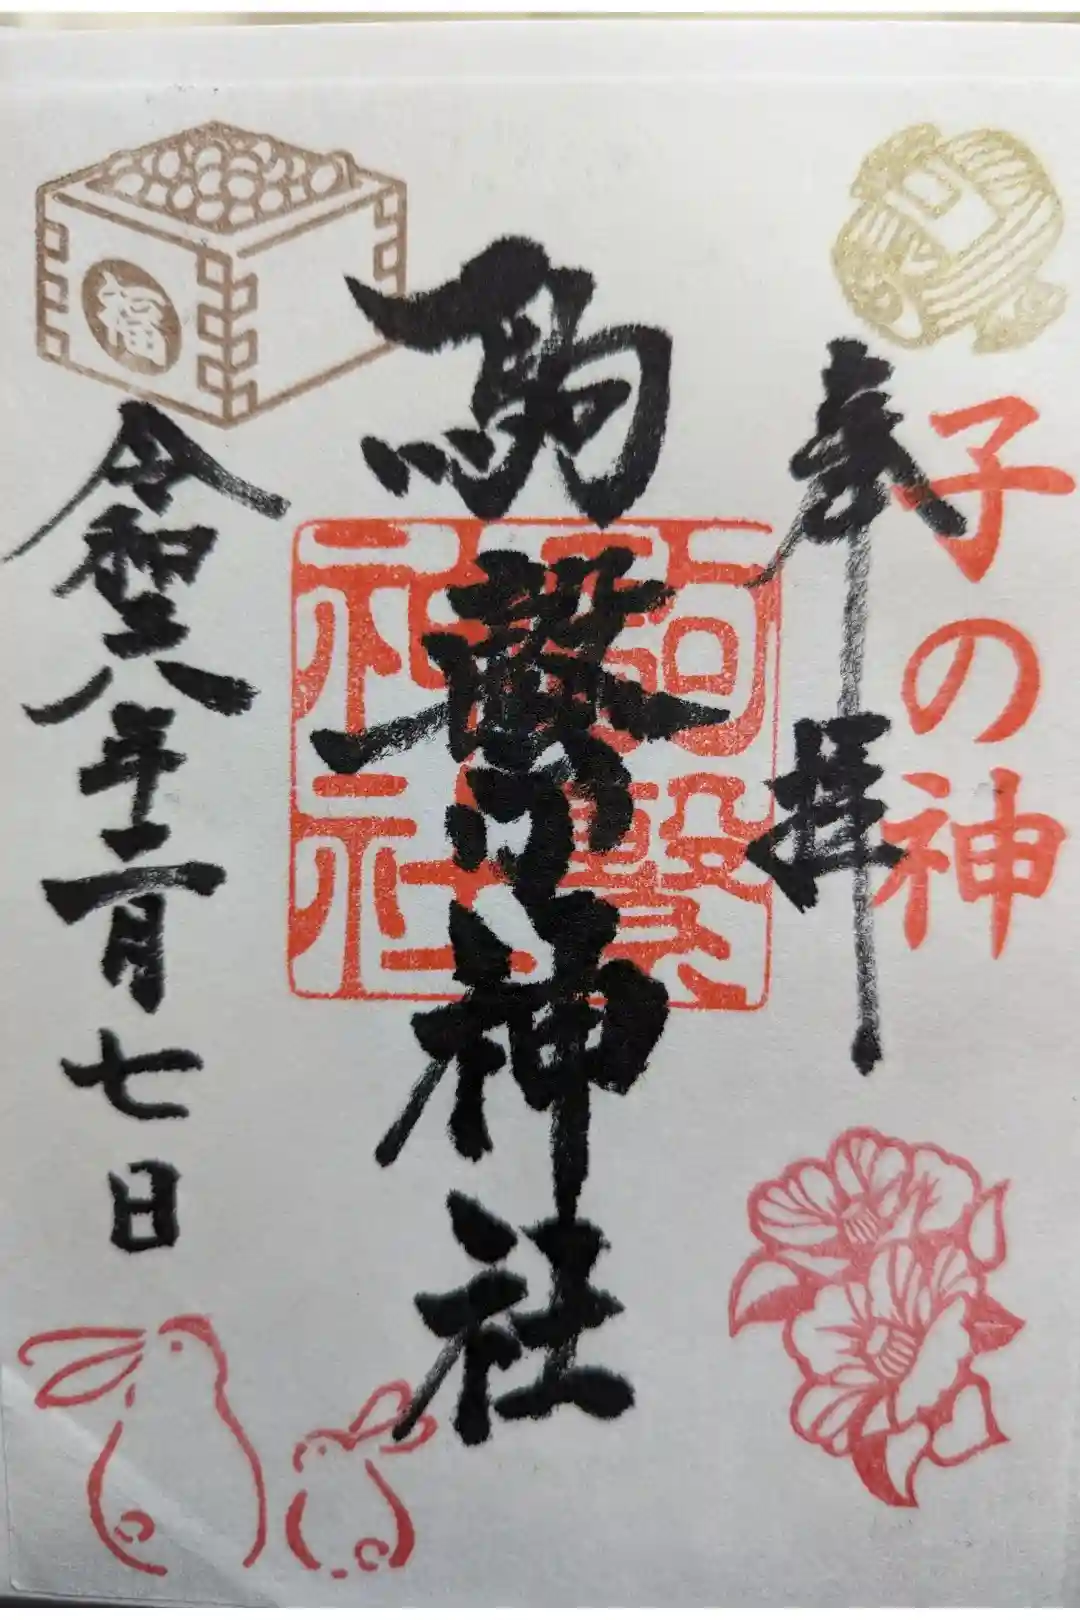 子の神
奉拝
駒繋神社
駒繋
神社
福
令和八年二月七日